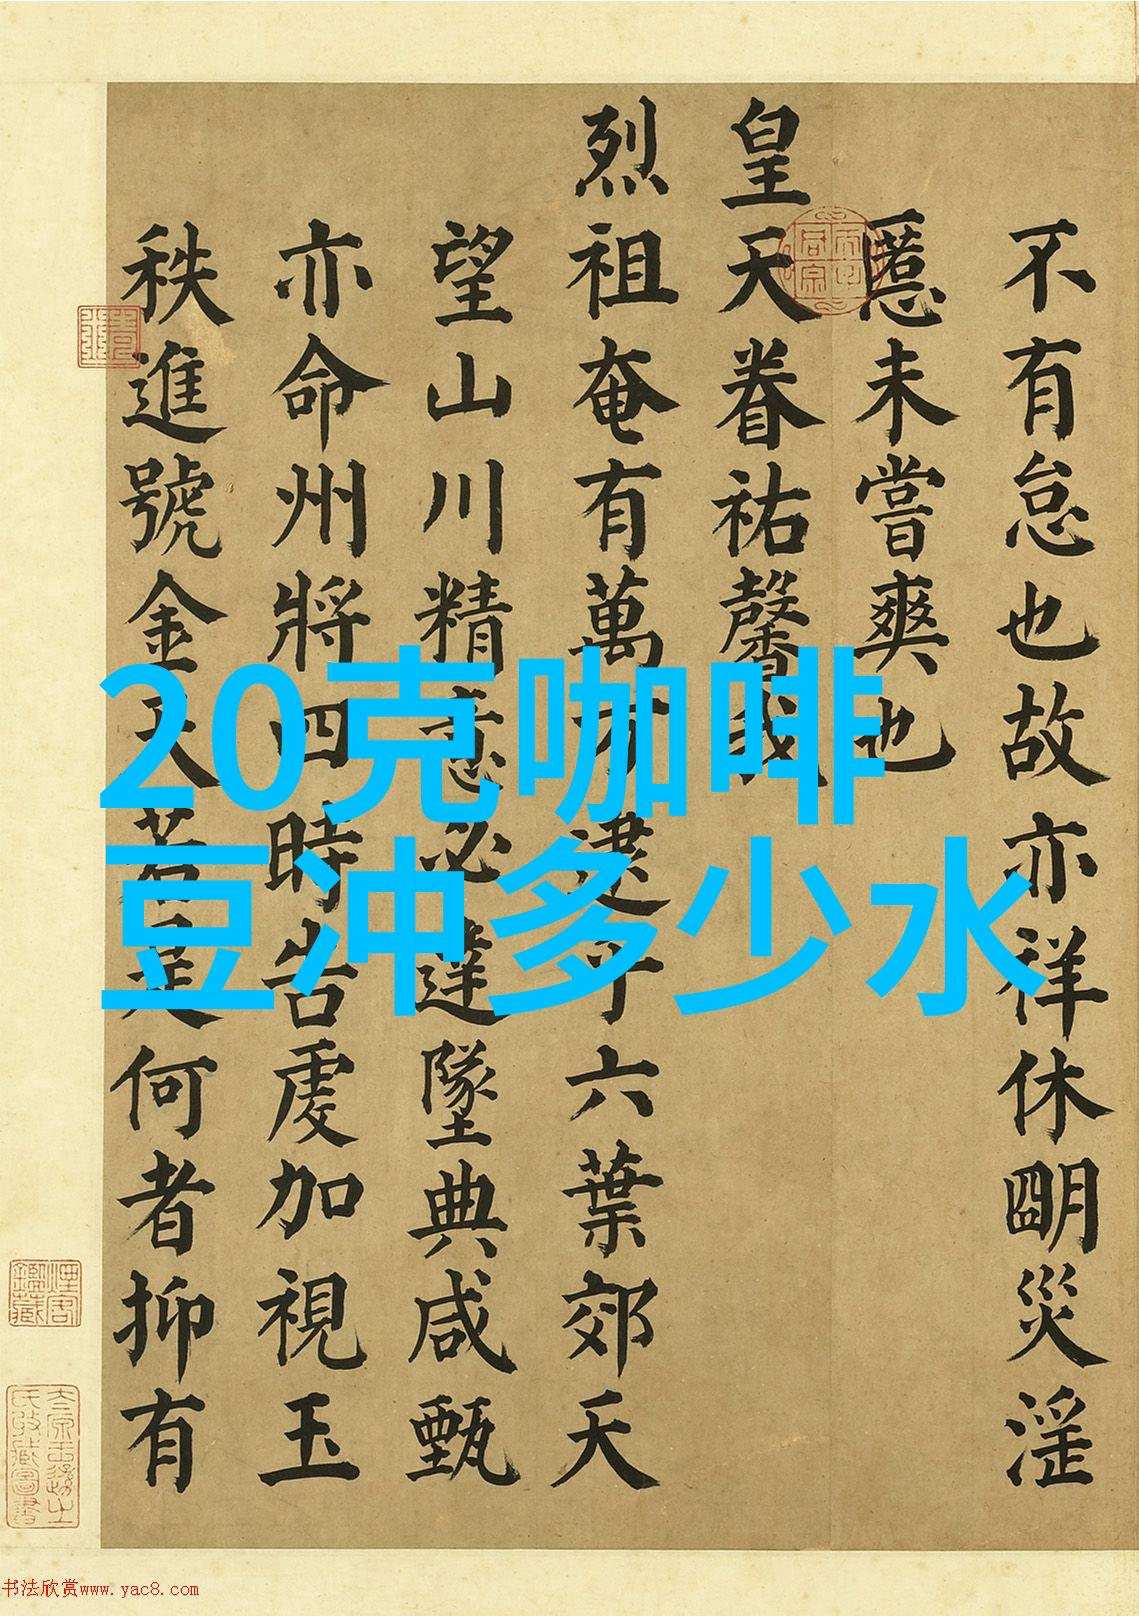 20克咖啡
豆冲多少水
不有怠也故亦祥休朙災淫
慝未嘗爽也
皇天眷祐馨我
烈祖奄有萬方逮乎六葉郊天
望山川精意必達墜典咸甄
亦命州將四時告虔加視玉
秩進號金天若是何者抑有
书法欣赏www.yac8.com